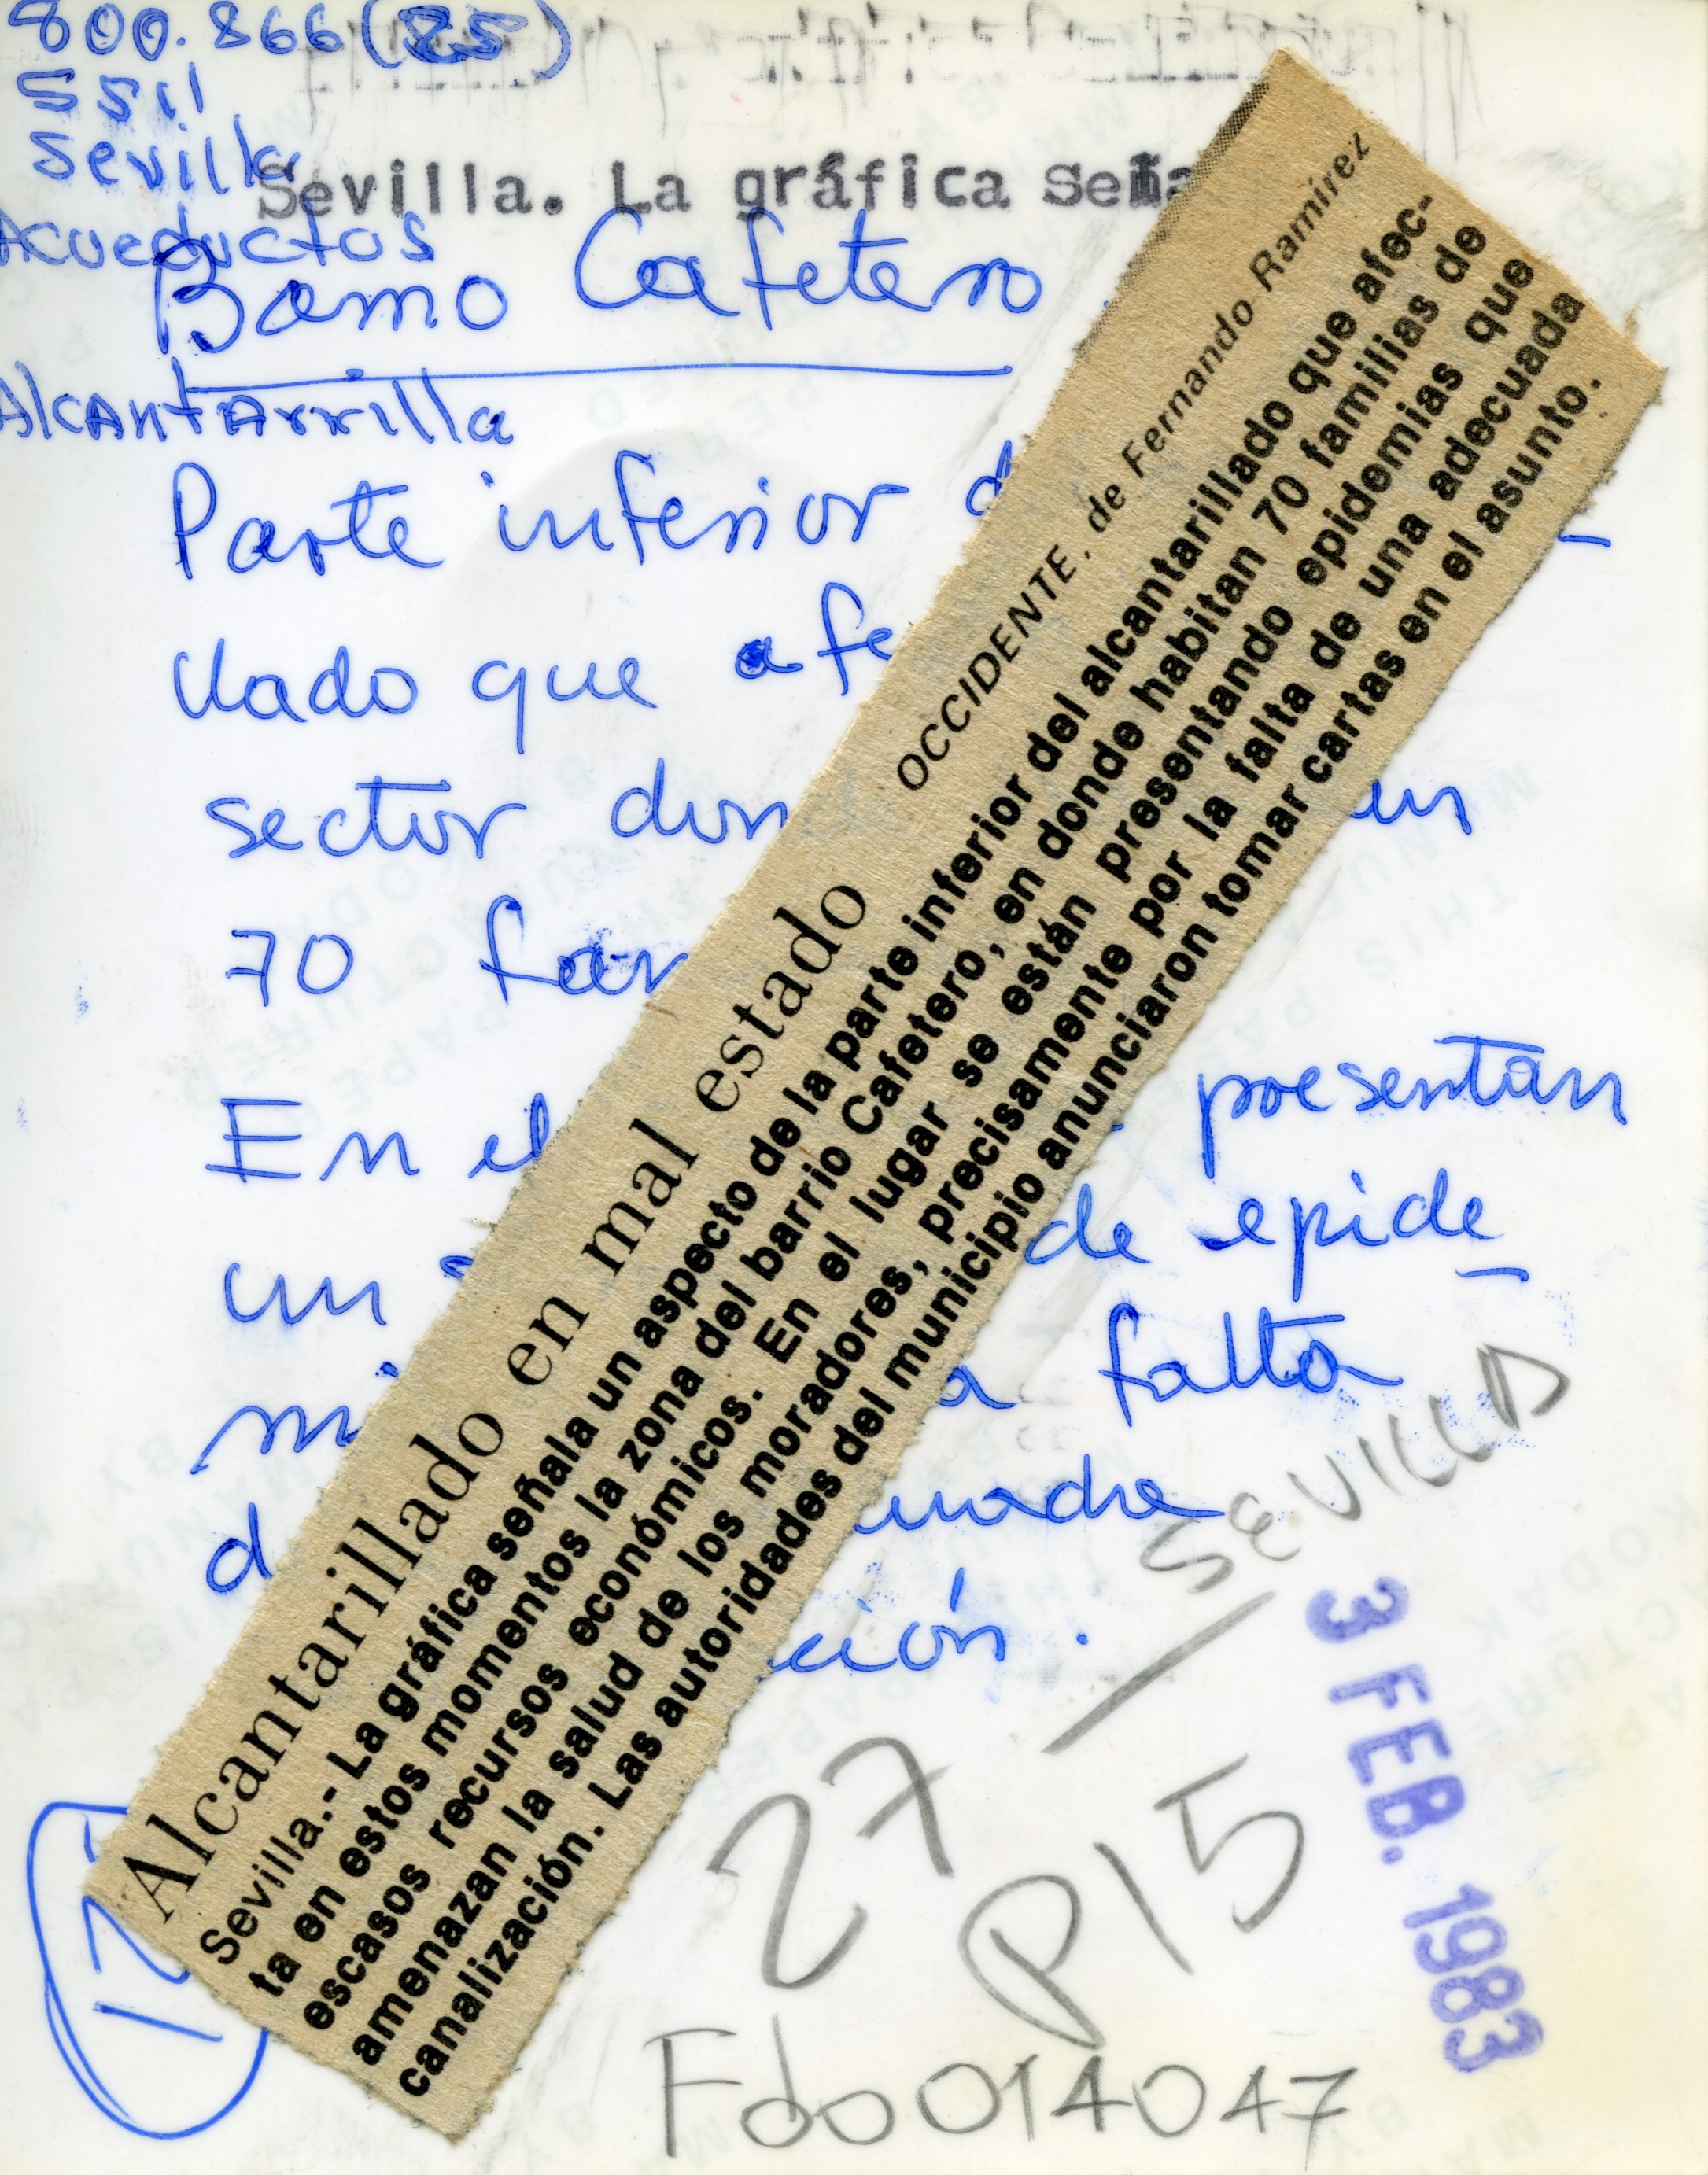 800.866(25)
SSil
Sevilla
Sevilla. La gráfica Seña
Acueductos
Barrio Cafetero
Alcantarrilla
Parte inferior d
llado que afe
sector don
70 fam
En el presentan
un de epide
mi a falta
d madre
ción.
OCCIDENTE, de Fernando Ramírez
Alcantarillado en mal estado
Sevilla.- La gráfica señala un aspecto de la parte inferior del alcantarillado que afec-
ta en estos momentos la zona del barrio Cafetero, en donde habitan 70 familias de
escasos recursos económicos. En el lugar se están presentando epidemias que
amenazan la salud de los moradores, precisamente por la falta de una adecuada
canalización. Las autoridades del municipio anunciaron tomar cartas en el asunto.
SEVILLA
27
P15
3 FEB. 1983
Fdo014047